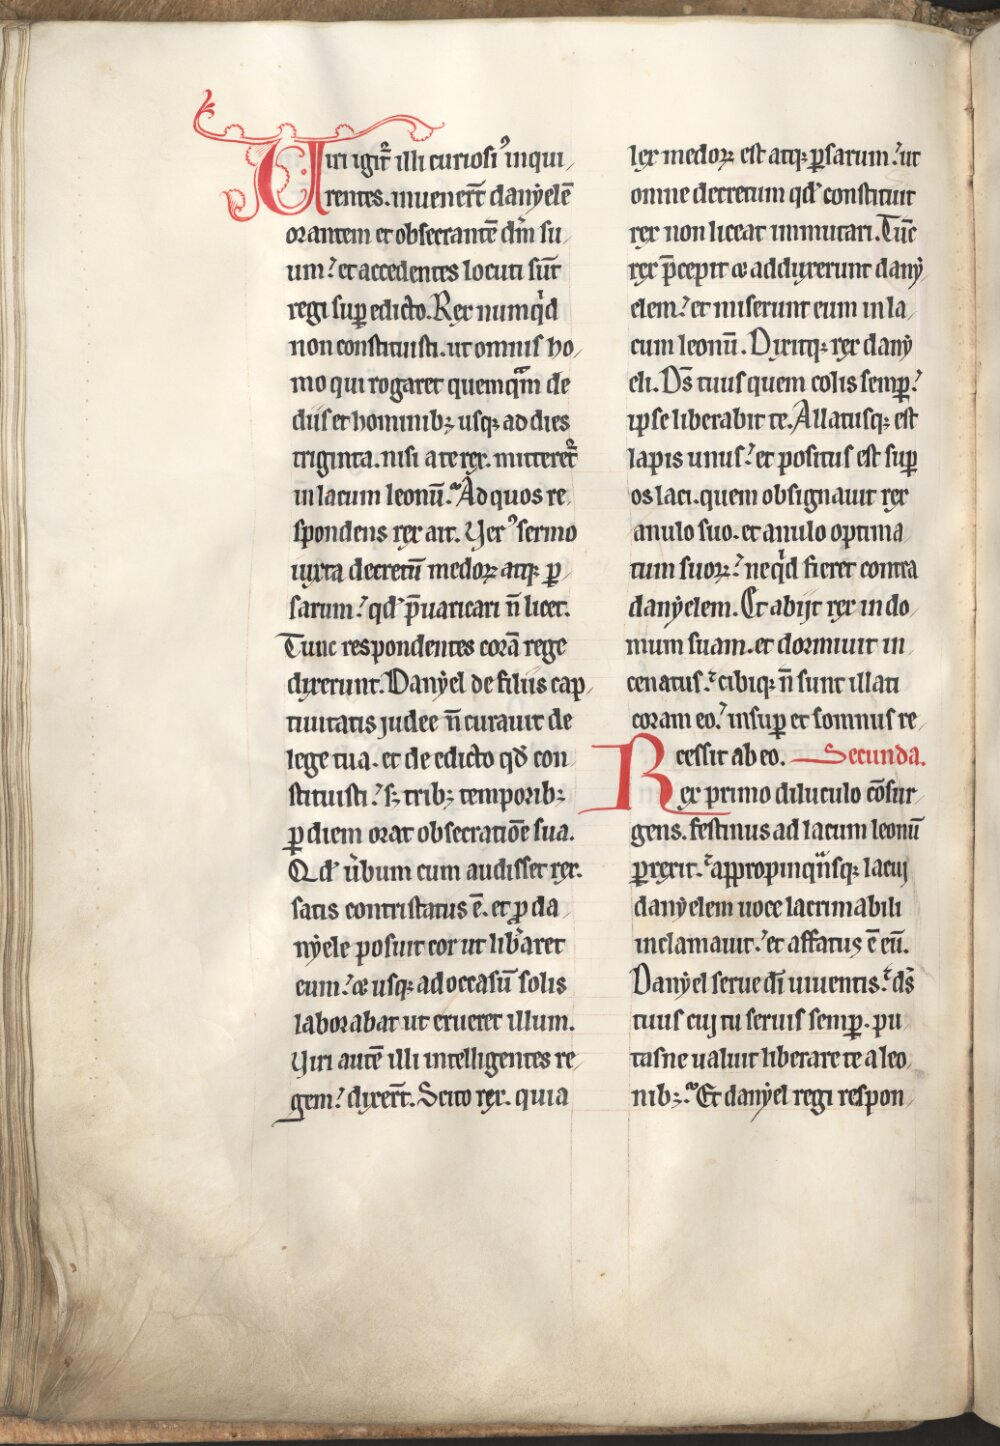 Uiri igit᷑ illi curiosiꝰ inqui,
rentes. inuener̄t danẏelē
orantem et obsecrantē dn̄m su,
um? et accedentes locuti sūt
regi suꝑ edicto. Rex numqͥd
non constituisti. ut omnis ho,
mo qui rogaret quemqͣm de
diis et hominibꝫ usqꝫ ad dies
triginta. nisi a te rex. mitteret᷑
in lacum leonū. Ad quos re,
spondens rex ait. Verꝰ sermo
iuxta decretū medoꝝ atqꝫ ꝑ,
sarum? qd̛ p̄uaricari n̄ licet.
Tunc respondentes corā rege
dixerunt. Danẏel de filiis cap,
tiuitatis judee n̄ curauit de
lege tua. et de edicto qd̛ con,
stituisti? sꝫ tribꝫ temporibꝫ
ꝑ diem orat obsecratiōe sua.
Qd̛ u̍bum cum audisset rex.
satis contristatus ē. et ꝓ da,
nẏele posuit cor ut lib̍aret
eum? ⁊ usqꝫ ad occasū solis
laborabat ut erueret illum.
Viri autē illi intelligentes re,
gem? dixer̄t. Scito rex. quia
lex medoꝝ est atqꝫ ꝑsarum? ut
omne decretum qd̛ constituit
rex non liceat immutari. Tūc
rex p̄cepit ⁊ adduxerunt danẏ,
elem? et miserunt eum in la,
cum leonū. Dixitqꝫ rex danẏ
eli. Ds̄ tuus quem colis semꝑ?
ipse liberabit te. Allatusqꝫ est
lapis unus? et positus est suꝑ
os laci. quem obsignauit rex
anulo suo. et anulo optima,
tum suoꝝ? neqͥd fieret contra
danẏelem. Et abijt rex in do,
mum suam. et dormiuit in,
cenatus? cibiqꝫ n̄ sunt illati
coram eo? insuꝑ et somnus re,
cessit ab eo. Secunda.
Rex primo diluculo cōsur,
gens. festinus ad lacum leonū
ꝑrexit. appropinqͣnsqꝫ lacuj
danẏelem uoce lacrimabili
inclamauit? et affatus ē eū.
Danẏel serue dī uiuentis? ds̄
tuus cuj tu seruis semꝑ. pu,
tasne ualuit liberare te a leo,
nibꝫ. Et danẏel regi respon,